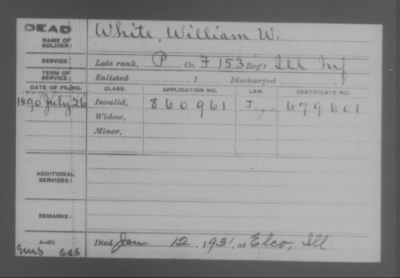 DEAD
NAME OF SOLDIER: White, William W.
SERVICE: Late rank, P Co. F 153 Reg't Ill Inf
TERM OF SERVICE: Enlisted , 1 Discharged
DATE OF FILING. CLASS. APPLICATION NO. LAW. CERTIFICATE NO.
1890 July 26 Invalid, 860961 679601
Widow,
Minor,
ADDITIONAL SERVICES:
REMARKS:
Died Jan 12, 1931 at Elco, Ill